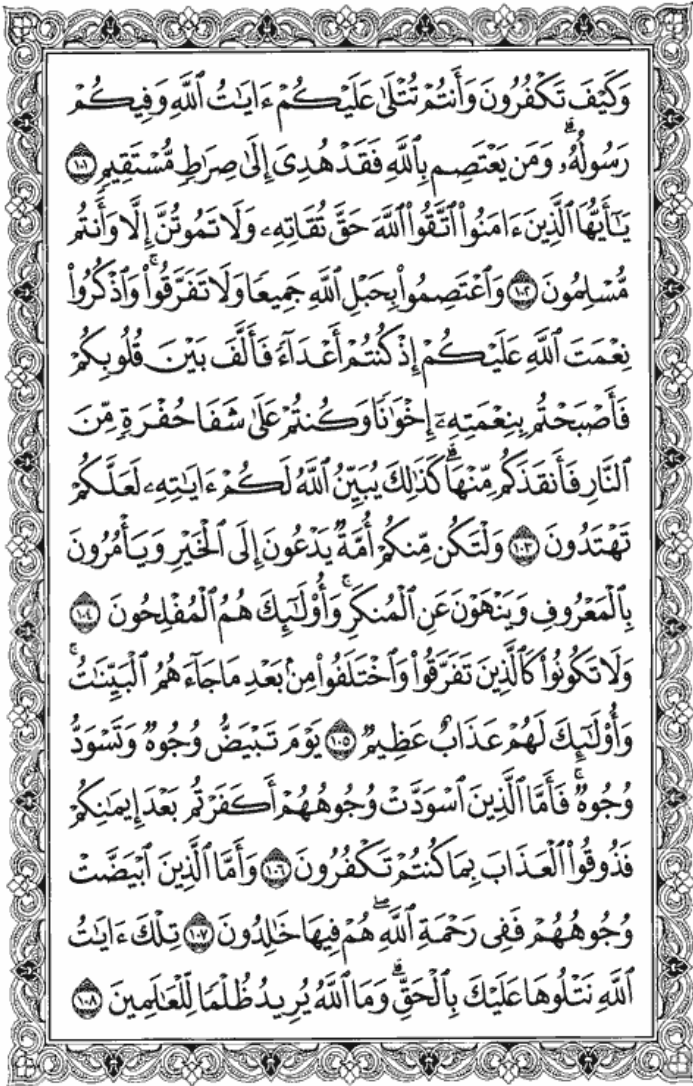 وَكَيْفَ تَكْفُرُونَ وَأَنتُمْ تُتْلَىٰ عَلَيْكُمْ ءَايَٰتُ ٱللَّهِ وَفِيكُمْ
رَسُولُهُۥۗ وَمَن يَعْتَصِم بِٱللَّهِ فَقَدْ هُدِىَ إِلَىٰ صِرَٰطٍ مُّسْتَقِيمٍ ١٠١
يَٰٓأَيُّهَا ٱلَّذِينَ ءَامَنُوا۟ ٱتَّقُوا۟ ٱللَّهَ حَقَّ تُقَاتِهِۦ وَلَا تَمُوتُنَّ إِلَّا وَأَنتُم
مُّسْلِمُونَ ١٠٢ وَٱعْتَصِمُوا۟ بِحَبْلِ ٱللَّهِ جَمِيعًا وَلَا تَفَرَّقُوا۟ۚ وَٱذْكُرُوا۟
نِعْمَتَ ٱللَّهِ عَلَيْكُمْ إِذْ كُنتُمْ أَعْدَآءً فَأَلَّفَ بَيْنَ قُلُوبِكُمْ
فَأَصْبَحْتُم بِنِعْمَتِهِۦٓ إِخْوَٰنًا وَكُنتُمْ عَلَىٰ شَفَا حُفْرَةٍ مِّنَ
ٱلنَّارِ فَأَنقَذَكُم مِّنْهَاۗ كَذَٰلِكَ يُبَيِّنُ ٱللَّهُ لَكُمْ ءَايَٰتِهِۦ لَعَلَّكُمْ
تَهْتَدُونَ ١٠٣ وَلْتَكُن مِّنكُمْ أُمَّةٌ يَدْعُونَ إِلَى ٱلْخَيْرِ وَيَأْمُرُونَ
بِٱلْمَعْرُوفِ وَيَنْهَوْنَ عَنِ ٱلْمُنكَرِۚ وَأُو۟لَٰٓئِكَ هُمُ ٱلْمُفْلِحُونَ ١٠٤
وَلَا تَكُونُوا۟ كَٱلَّذِينَ تَفَرَّقُوا۟ وَٱخْتَلَفُوا۟ مِنۢ بَعْدِ مَا جَآءَهُمُ ٱلْبَيِّنَٰتُۚ
وَأُو۟لَٰٓئِكَ لَهُمْ عَذَابٌ عَظِيمٌ ١٠٥ يَوْمَ تَبْيَضُّ وُجُوهٌ وَتَسْوَدُّ
وُجُوهٌۚ فَأَمَّا ٱلَّذِينَ ٱسْوَدَّتْ وُجُوهُهُمْ أَكَفَرْتُم بَعْدَ إِيمَٰنِكُمْ
فَذُوقُوا۟ ٱلْعَذَابَ بِمَا كُنتُمْ تَكْفُرُونَ ١٠٦ وَأَمَّا ٱلَّذِينَ ٱبْيَضَّتْ
وُجُوهُهُمْ فَفِى رَحْمَةِ ٱللَّهِۖ هُمْ فِيهَا خَٰلِدُونَ ١٠٧ تِلْكَ ءَايَٰتُ
ٱللَّهِ نَتْلُوهَا عَلَيْكَ بِٱلْحَقِّۗ وَمَا ٱللَّهُ يُرِيدُ ظُلْمًا لِّلْعَٰلَمِينَ ١٠٨